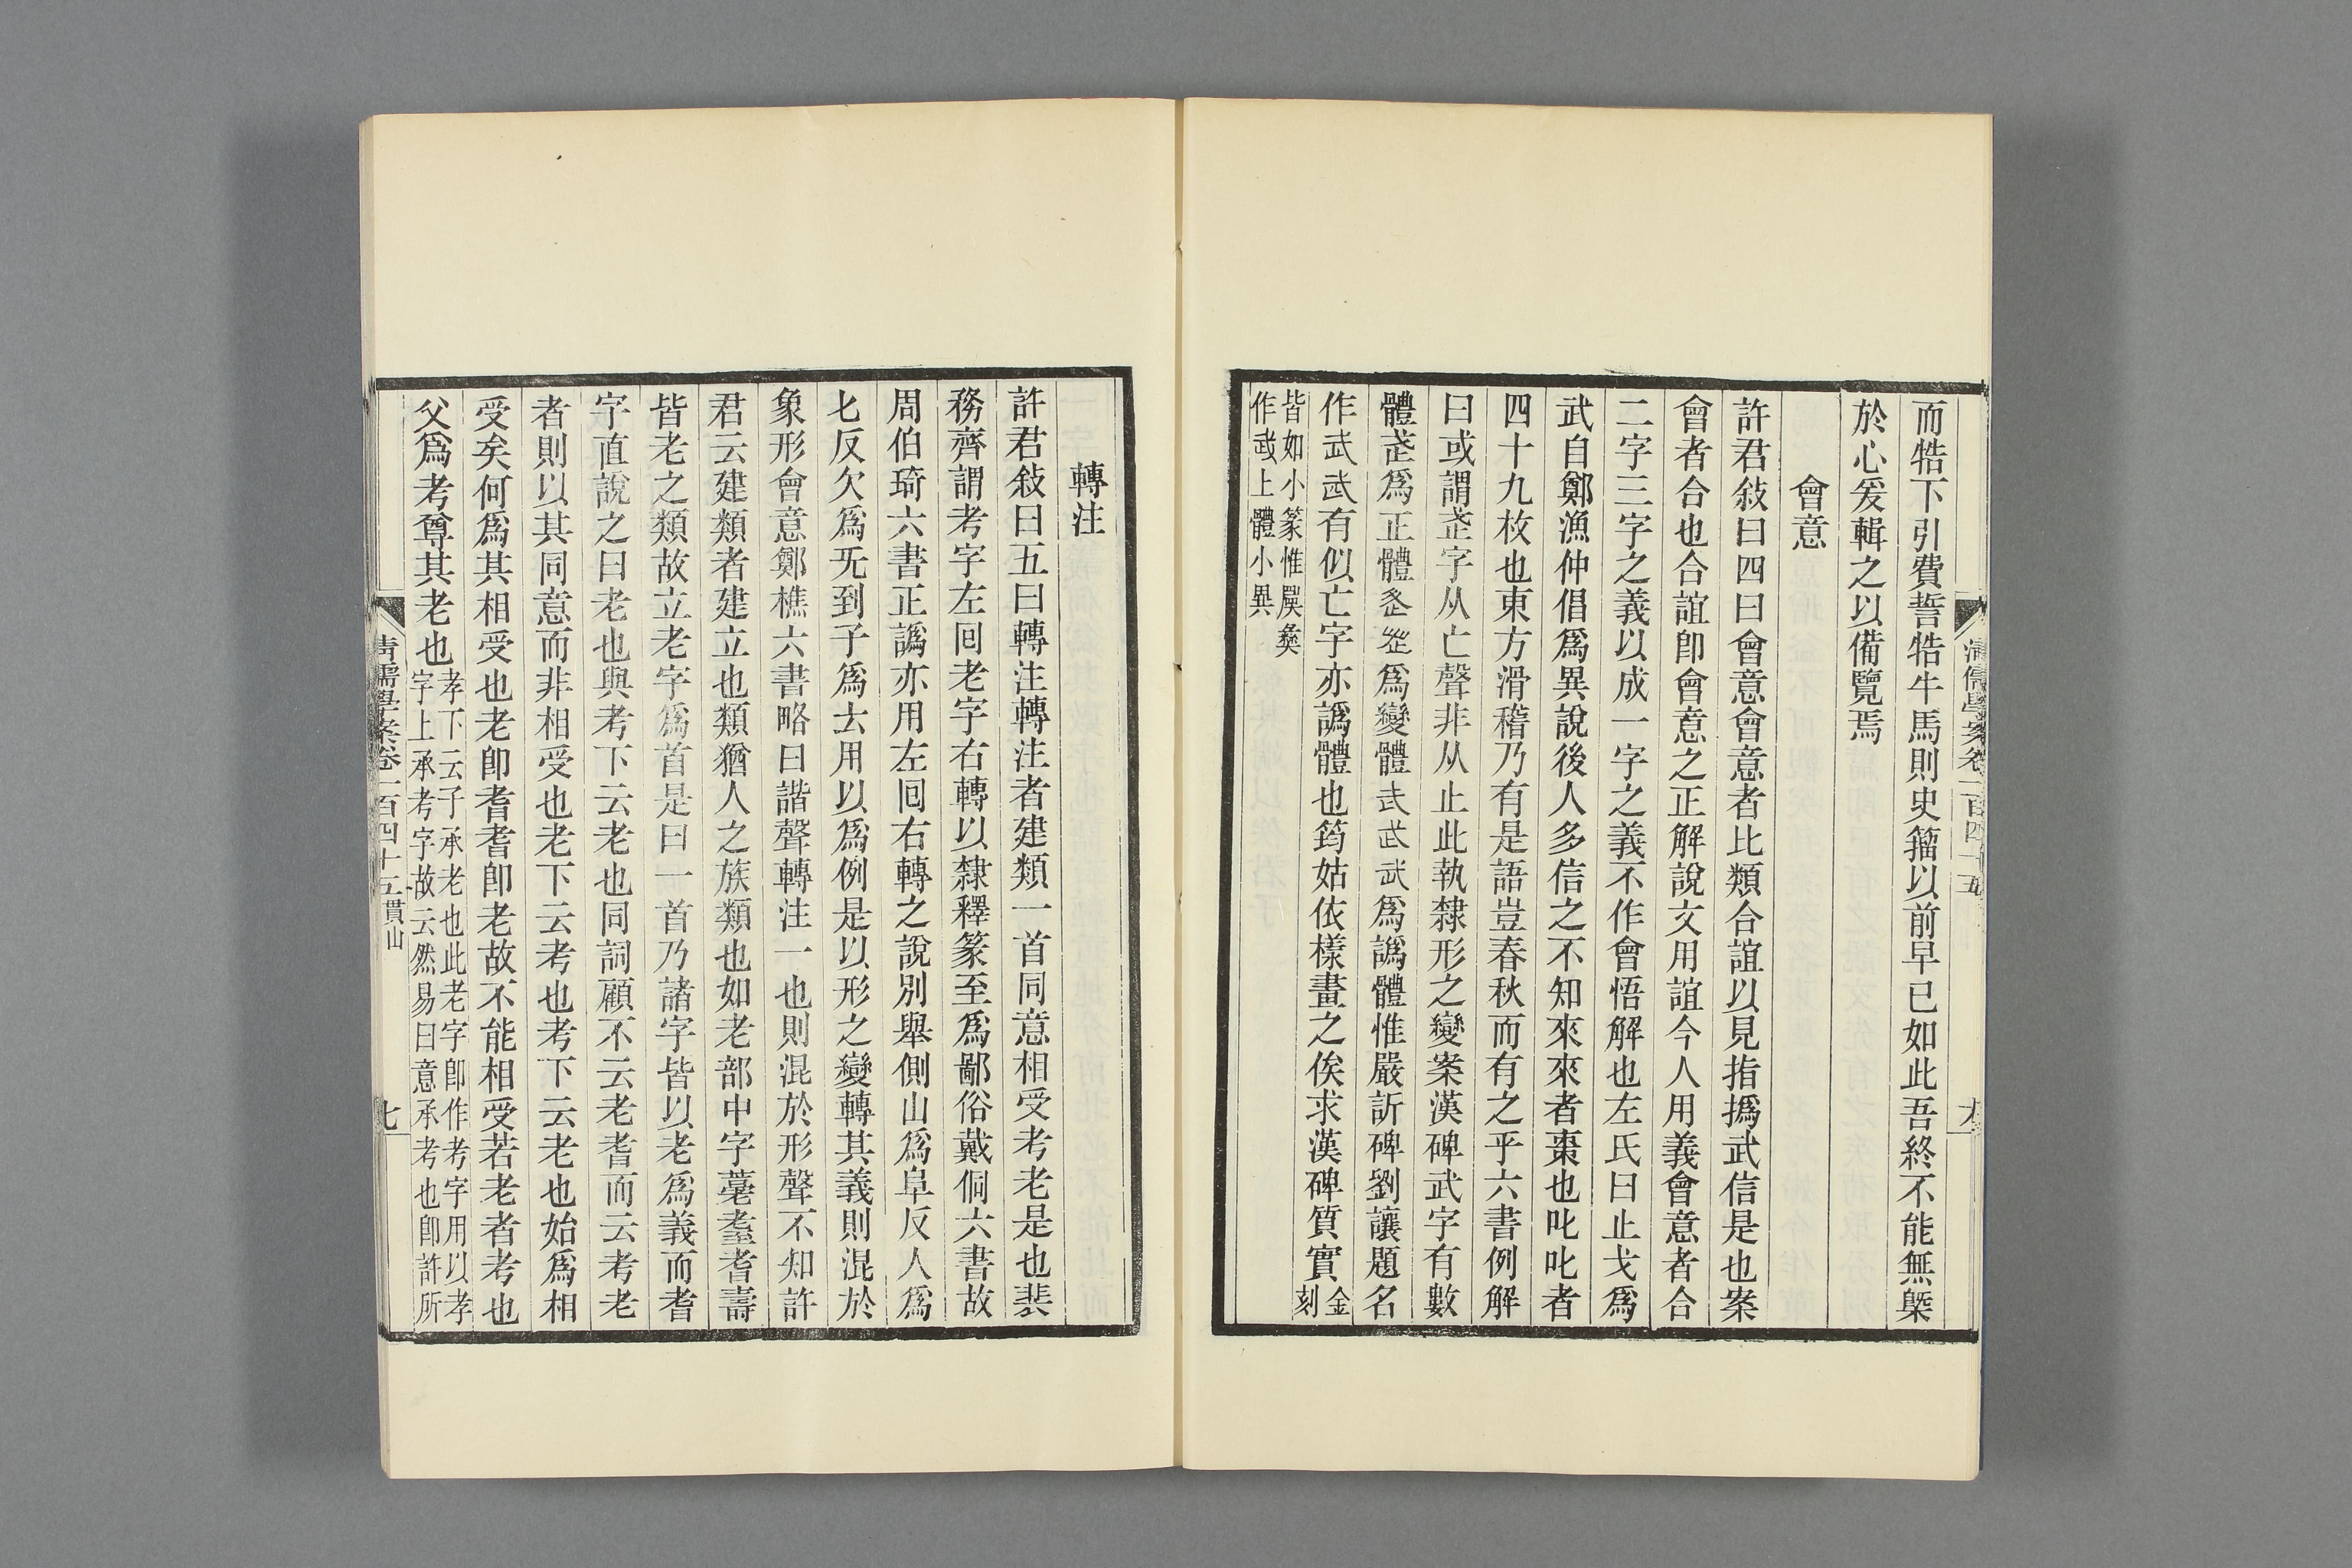 而牿下引費誓牿牛馬則史籀以前早已如此吾終不能無槩
於心爰輯之以備覽焉
會意
許君敍曰四曰會意會意者比類合誼以見指撝武信是也案
會者合也合誼卽會意之正解說文用誼今人用義會意者合
二字三字之義以成一字之義不作會悟解也左氏曰止戈爲
武自鄭漁仲倡爲異說後人多信之不知來來者棗也叱叱者
四十九枚也東方滑稽乃有是語豈春秋而有之乎六書例解
曰或謂字从亡聲非从止此執隸形之變案漢碑武字有數
體爲正體爲變體武武武爲譌體惟嚴訢碑劉讓題名
作武武有似亡字亦譌體也筠姑依樣畫之俟求漢碑質實金刻
皆如小篆惟彝
作上體小異
轉注
許君敍曰五曰轉注轉注者建類一首同意相受考老是也裴
務齊謂考字左回老字右轉以隸釋篆至爲鄙俗戴侗六書故
周伯琦六書正譌亦用左回右轉之說別舉側山爲阜反人爲
匕反欠爲旡到子爲𠫓用以爲例是以形之變轉其義則混於
象形會意鄭樵六書略曰諧聲轉注一也則混於形聲不知許
君云建類者建立也類猶人之族類也如老部中字薹耋耆壽
皆老之類故立老字爲首是曰一首乃諸字皆以老爲義而耆
字直說之曰老也與考下云老也同詞顧不云老耆而云考老
者則以其同意而非相受也老下云考也考下云老也始爲相
受矣何爲其相受也老卽耆耆卽老故不能相受若老者考也
父爲考尊其老也孝下云子承老也此老字卽作考字用以孝
字上承考字故云然易曰意承考也卽許所
清儒學案卷一百四十五貫山
七